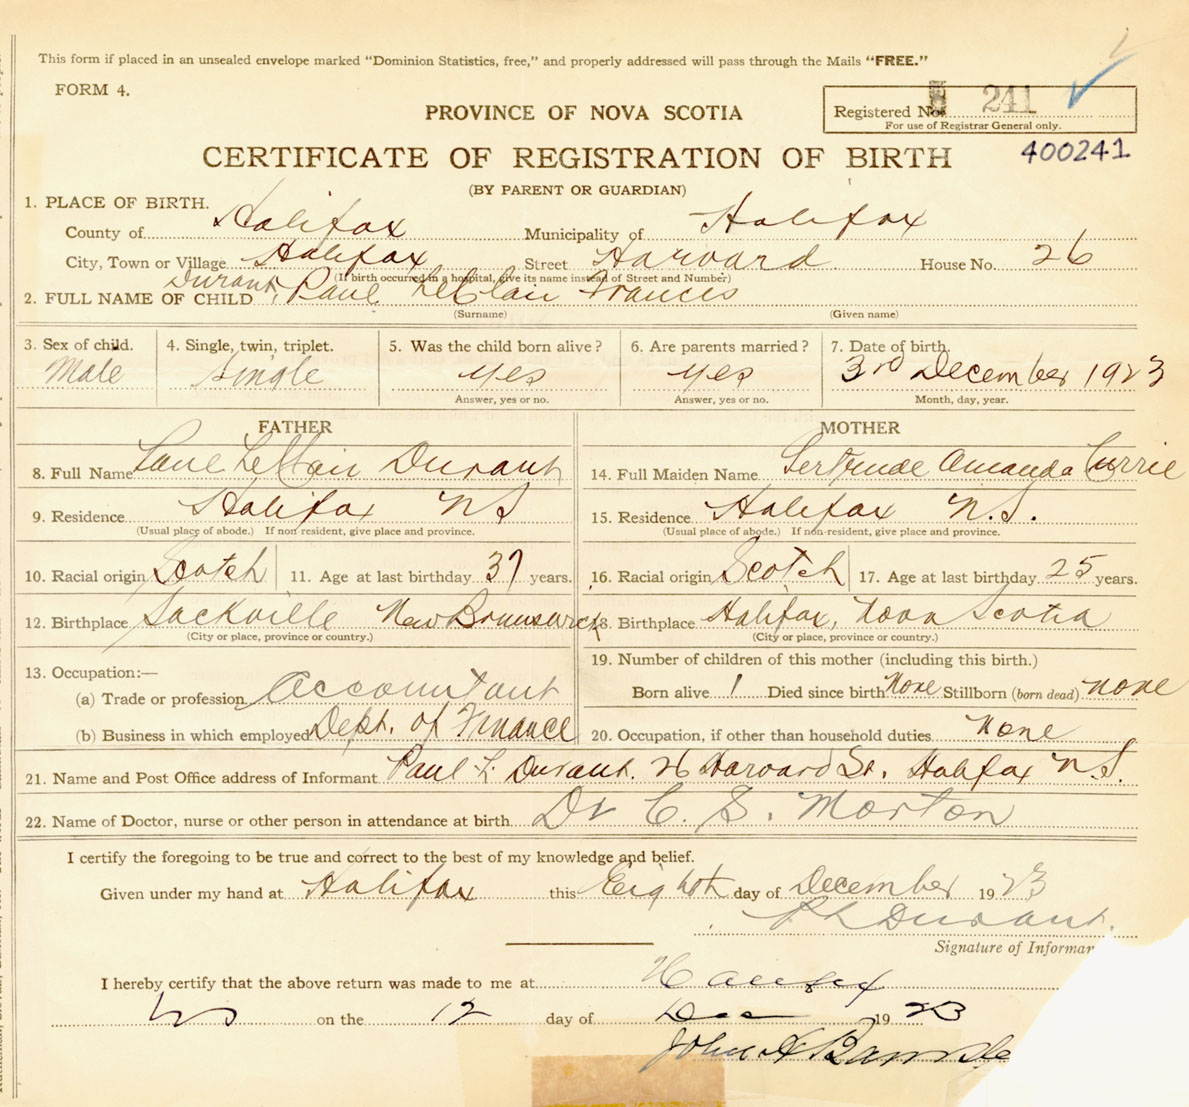 This form if placed in an unsealed envelope marked "Dominion Statistics, free," and properly addressed will pass through the Mails "FREE."
FORM 4.
PROVINCE OF NOVA SCOTIA
Registered No. 241
For use of Registrar General only.
CERTIFICATE OF REGISTRATION OF BIRTH
400241
(BY PARENT OR GUARDIAN)
1. PLACE OF BIRTH.
County of Halifax Municipality of Halifax
City, Town or Village Halifax Street Harvard House No. 26
(If birth occurred in a hospital, give its name instead of Street and Number)
2. FULL NAME OF CHILD Durant, Paul LeClair Francis
(Surname) (Given name)
3. Sex of child. 4. Single, twin, triplet. 5. Was the child born alive? 6. Are parents married? 7. Date of birth.
Male Single Yes Yes 3rd December 1923
Answer, yes or no. Answer, yes or no. Month, day, year.
FATHER MOTHER
8. Full Name Paul LeClair Durant 14. Full Maiden Name Gertrude Amanda Currie
9. Residence Halifax NS 15. Residence Halifax N.S.
(Usual place of abode.) If non-resident, give place and province. (Usual place of abode.) If non-resident, give place and province.
10. Racial origin Scotch 11. Age at last birthday 37 years. 16. Racial origin Scotch 17. Age at last birthday 25 years.
12. Birthplace Sackville New Brunswick 18. Birthplace Halifax, Nova Scotia
(City or place, province or country.) (City or place, province or country.)
13. Occupation:— 19. Number of children of this mother (including this birth.)
(a) Trade or profession Accountant Born alive 1 Died since birth None Stillborn (born dead) none
(b) Business in which employed Dept. of Finance 20. Occupation, if other than household duties None
21. Name and Post Office address of Informant Paul L. Durant. 26 Harvard St. Halifax N.S.
22. Name of Doctor, nurse or other person in attendance at birth Dr C. S. Morton
I certify the foregoing to be true and correct to the best of my knowledge and belief.
Given under my hand at Halifax this Eighth day of December 1923
P L Durant.
Signature of Informan
I hereby certify that the above return was made to me at Halifax
NS on the 12 day of Dec 1923
John A